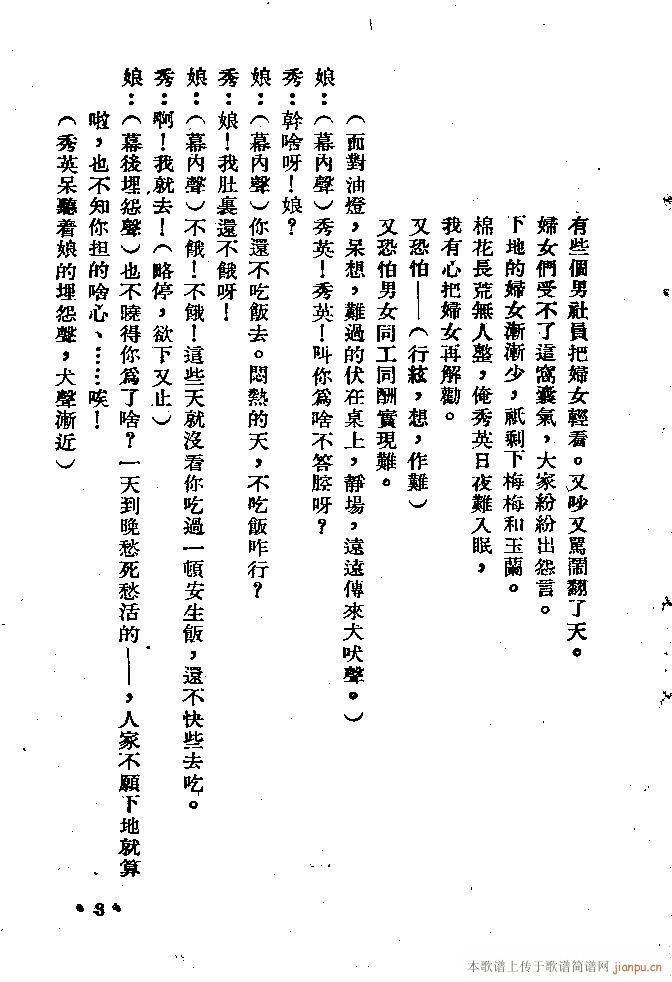 有些個男社員把婦女輕看。又吵又罵鬧翻了天。
婦女們受不了這窩囊氣，大家紛紛出怨言。
下地的婦女漸漸少，祇剩下梅梅和玉蘭。
棉花長荒無人整，俺秀英日夜難入眠，
我有心把婦女再解勸。
又恐怕——（行絃，想，作難）
又恐怕男女同工同酬實現難。
（面對油燈，呆想，難過的伏在桌上，靜場，遠遠傳來犬吠聲。）
娘：（幕內聲）秀英！秀英！叫你爲啥不答腔呀？
秀：幹啥呀！娘？
娘：（幕內聲）你還不吃飯去。悶熱的天，不吃飯咋行？
秀：娘！我肚裏還不餓呀！
娘：（幕內聲）不餓！不餓！這些天就沒看你吃過一頓安生飯，還不快些去吃。
秀：啊！我就去！（略停，欲下又止）
娘：（幕後埋怨聲）也不曉得你爲了啥？一天到晚愁死愁活的——，人家不願下地就算
啦，也不知你担的啥心、……唉！
（秀英呆聽着娘的埋怨聲，犬聲漸近）
•3•
本歌谱上传于歌谱简谱网
jianpu.cn